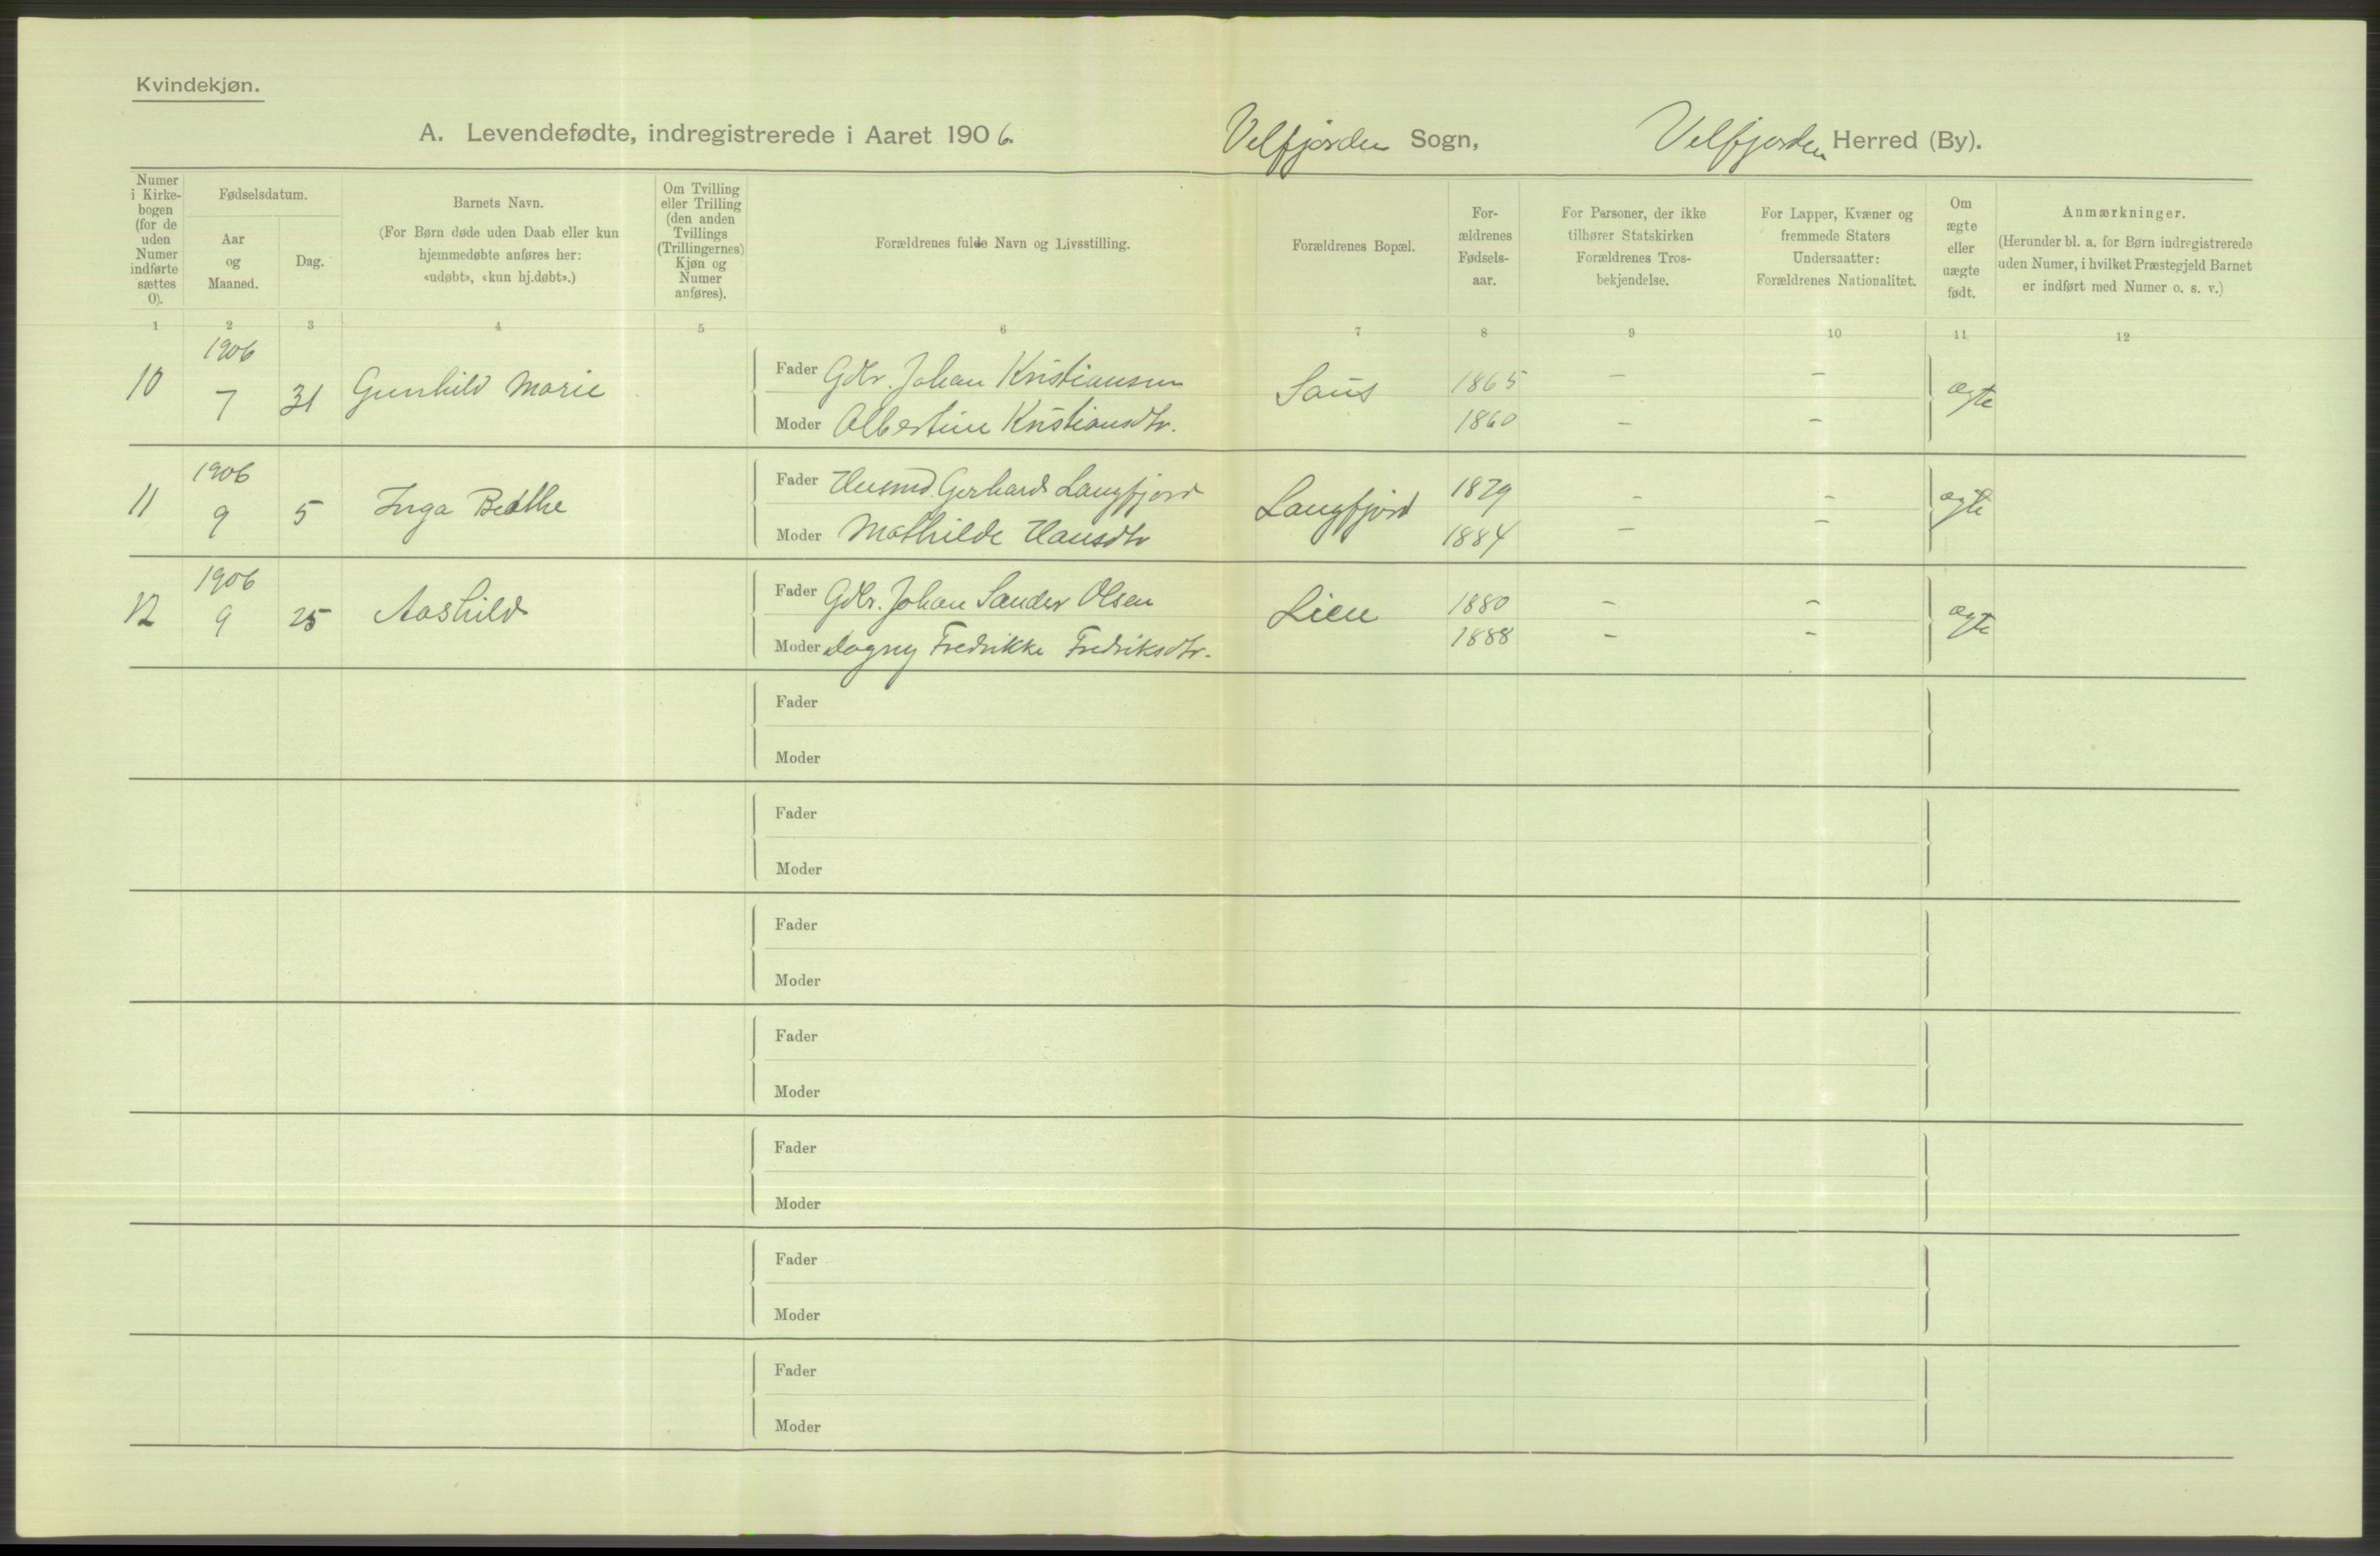 Kvindekjøn.
A. Levendefødte, indregistrerede i Aaret 1906. Velfjorden Sogn, Velfjorden Herred (By).
Numer i Kirke-bogen (for de uden Numer indførte sættes 0).
Fødselsdatum.
Aar og Maaned.
Dag.
Barnets Navn.
(For Børn døde uden Daab eller kun
hjemmedøbte anføres her:
«udøbt», «kun hj.døbt».)
Om Tvilling
eller Trilling
(den anden
Tvillings
(Trillingernes)
Kjøn og
Numer
anføres).
Forældrenes fulde Navn og Livsstilling.
Forældrenes Bopæl.
For-
ældrenes
Fødsels-
aar.
For Personer, der ikke
tilhører Statskirken
Forældrenes Tros-
bekjendelse.
For Lapper, Kvæner og
fremmede Staters
Undersaatter:
Forældrenes Nationalitet.
Om
ægte
eller
uægte
født.
Anmærkninger.
(Herunder bl. a. for Børn indregistrerede
uden Numer, i hvilket Præstegjeld Barnet
er indført med Numer o. s. v.)
1 2 3 4 5 6 7 8 9 10 11 12
1906
10 7 31 Gunhild Marie Fader Gdbr. Johan Kristiansen Saus 1865 – – ægte
Moder Albertine Kristiansdtr. 1860 – –
1906
11 9 5 Inga Beathe Fader Husmd. Gerhard Langfjord Langfjord 1879 – – ægte
Moder Mathilde Hansdtr 1884 – –
1906
12 9 25 Aashild Fader Gdbr. Johan Sander Olsen Lien 1880 – – ægte
Moder Dagny Fredrikke Fredriksdtr. 1888 – –
Fader
Moder
Fader
Moder
Fader
Moder
Fader
Moder
Fader
Moder
Fader
Moder
Fader
Moder